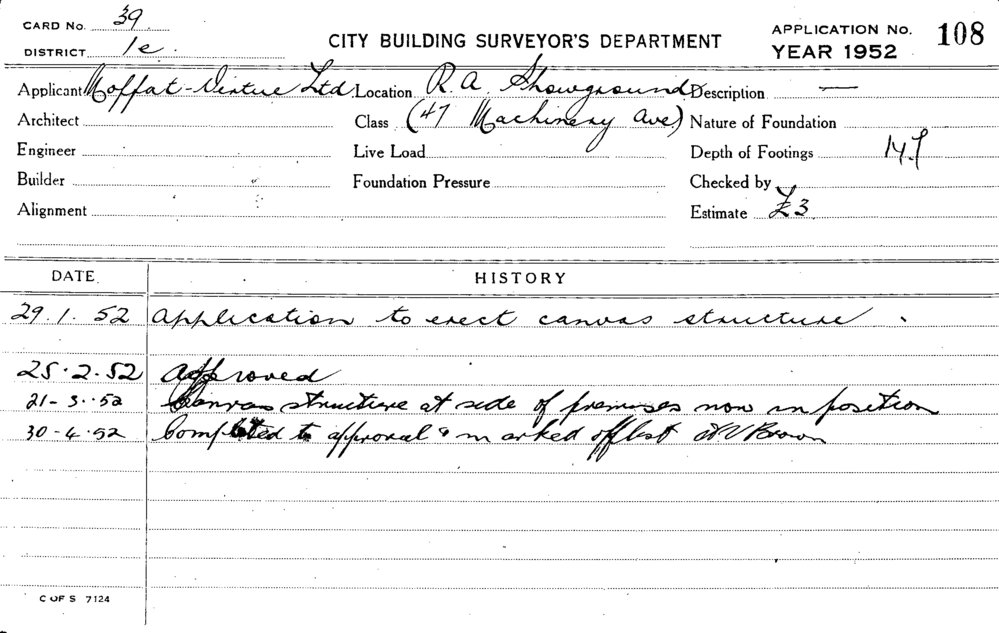 CARD No. 39
DISTRICT 1e.
CITY BUILDING SURVEYOR'S DEPARTMENT
APPLICATION No. 108
YEAR 1952
Applicant Moffat-Virtue Ltd Location R.A. Showground Description —
Architect Class (47 Machinery Ave) Nature of Foundation
Engineer Live Load Depth of Footings
Builder Foundation Pressure Checked by
Alignment Estimate £3
DATE HISTORY
29.1.52 Application to erect canvas structure.
25.2.52 Approved
21-3-52 Canvas structure at side of premises now in position
30-4-52 Completed to approval & marked off list Brown
C OF S 7124